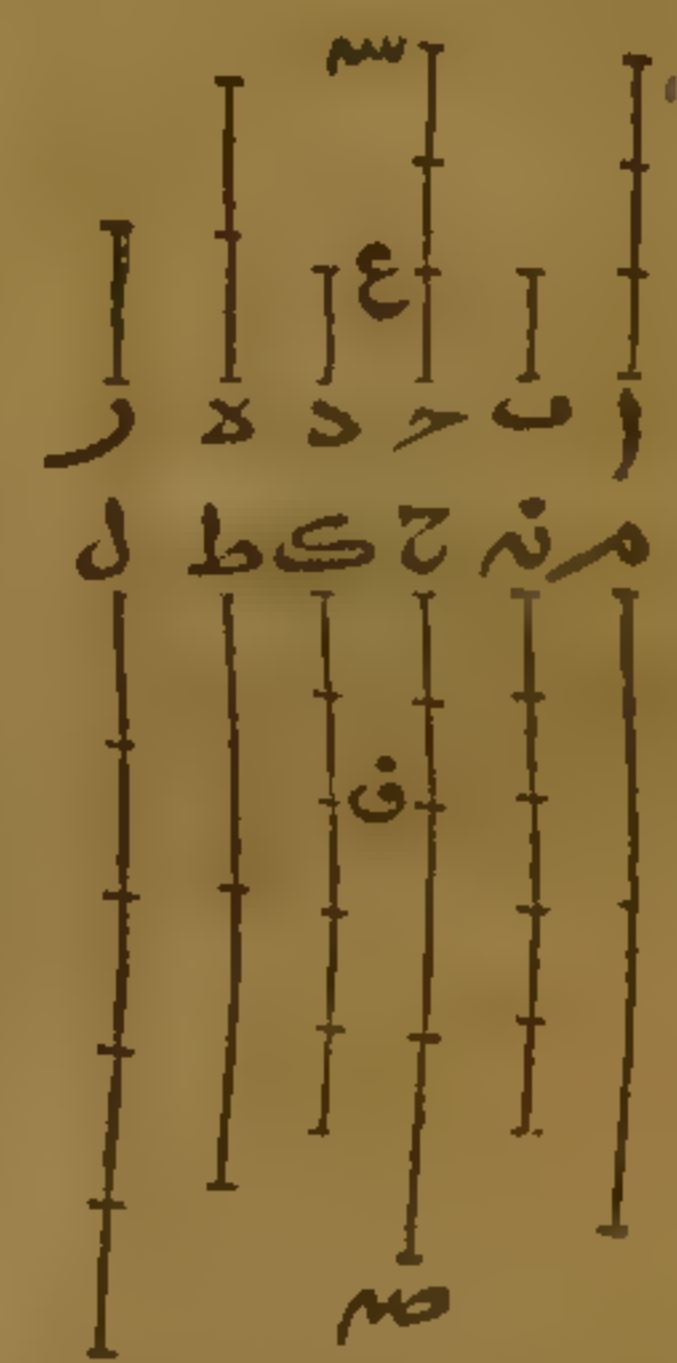 س
ع
ا ب ح د ه ر
م ن ح ك ط ل
ف
ص